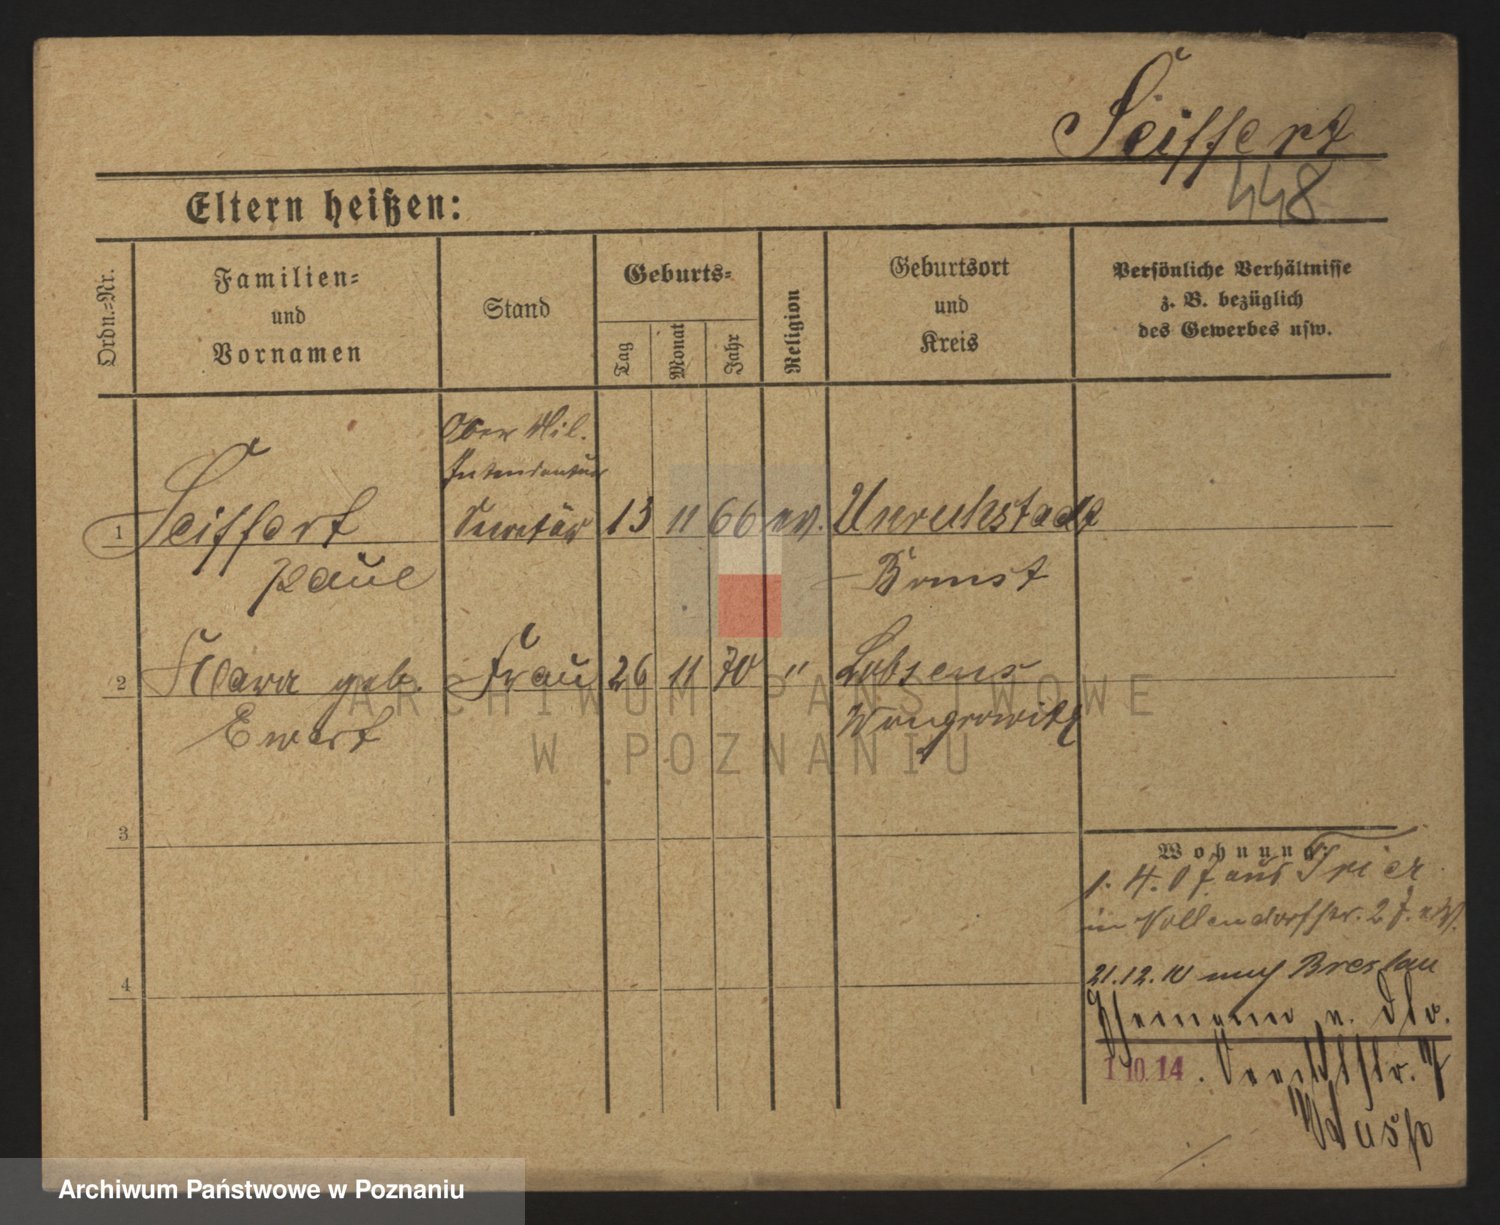 Seiffert
448
Eltern heißen:
Ordn.=Nr.
Familien=
und
Vornamen
Stand
Geburts=
Tag
Monat
Jahr
Religion
Geburtsort
und
Kreis
Persönliche Verhältnisse
z. B. bezüglich
des Gewerbes usw.
Ober Mil.
Intendantur
1 Seiffert Secretär 13 11 66 ev. Unruhstadt
Paul Bomst
2 Klara geb. Frau 26 11 70 " Lobsens
Ewert Wongrowitz
3
4
Wohnung
1. 4. 07 aus Trier
in Hollendorfstr. 27.
21.12.10 nach Breslau
1.10.14
ARCHIWUM PAŃSTWOWE
W POZNANIU
Archiwum Państwowe w Poznaniu